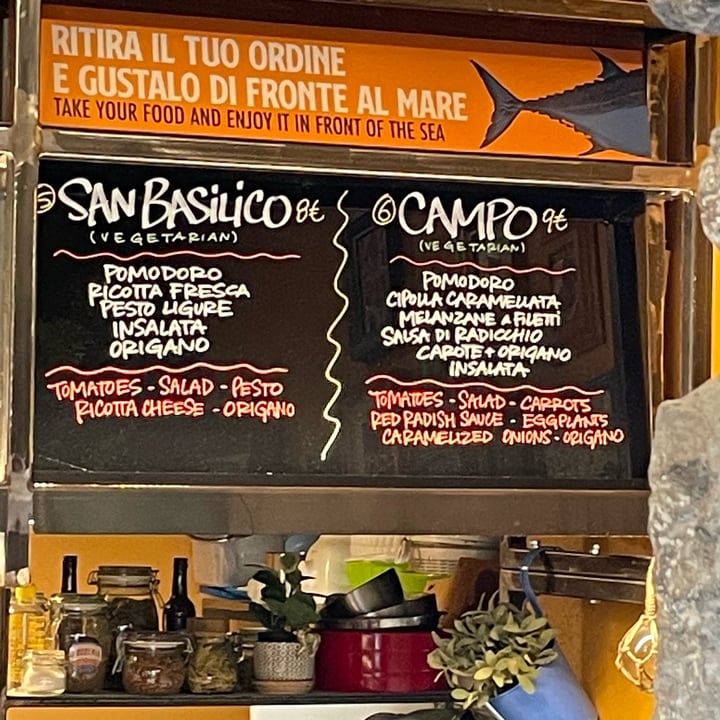 RITIRA IL TUO ORDINE
E GUSTALO DI FRONTE AL MARE
TAKE YOUR FOOD AND ENJOY IT IN FRONT OF THE SEA
5 SAN BASILICO 8€
(VEGETARIAN)
POMODORO
RICOTTA FRESCA
PESTO LIGURE
INSALATA
ORIGANO
TOMATOES - SALAD - PESTO
RICOTTA CHEESE - ORIGANO
6 CAMPO 9€
(VEGETARIAN)
POMODORO
CIPOLLA CARAMELLATA
MELANZANE A FILETTI
SALSA DI RADICCHIO
CAROTE + ORIGANO
INSALATA
TOMATOES - SALAD - CARROTS
RED RADISH SAUCE - EGGPLANTS
CARAMELIZED ONIONS - ORIGANO